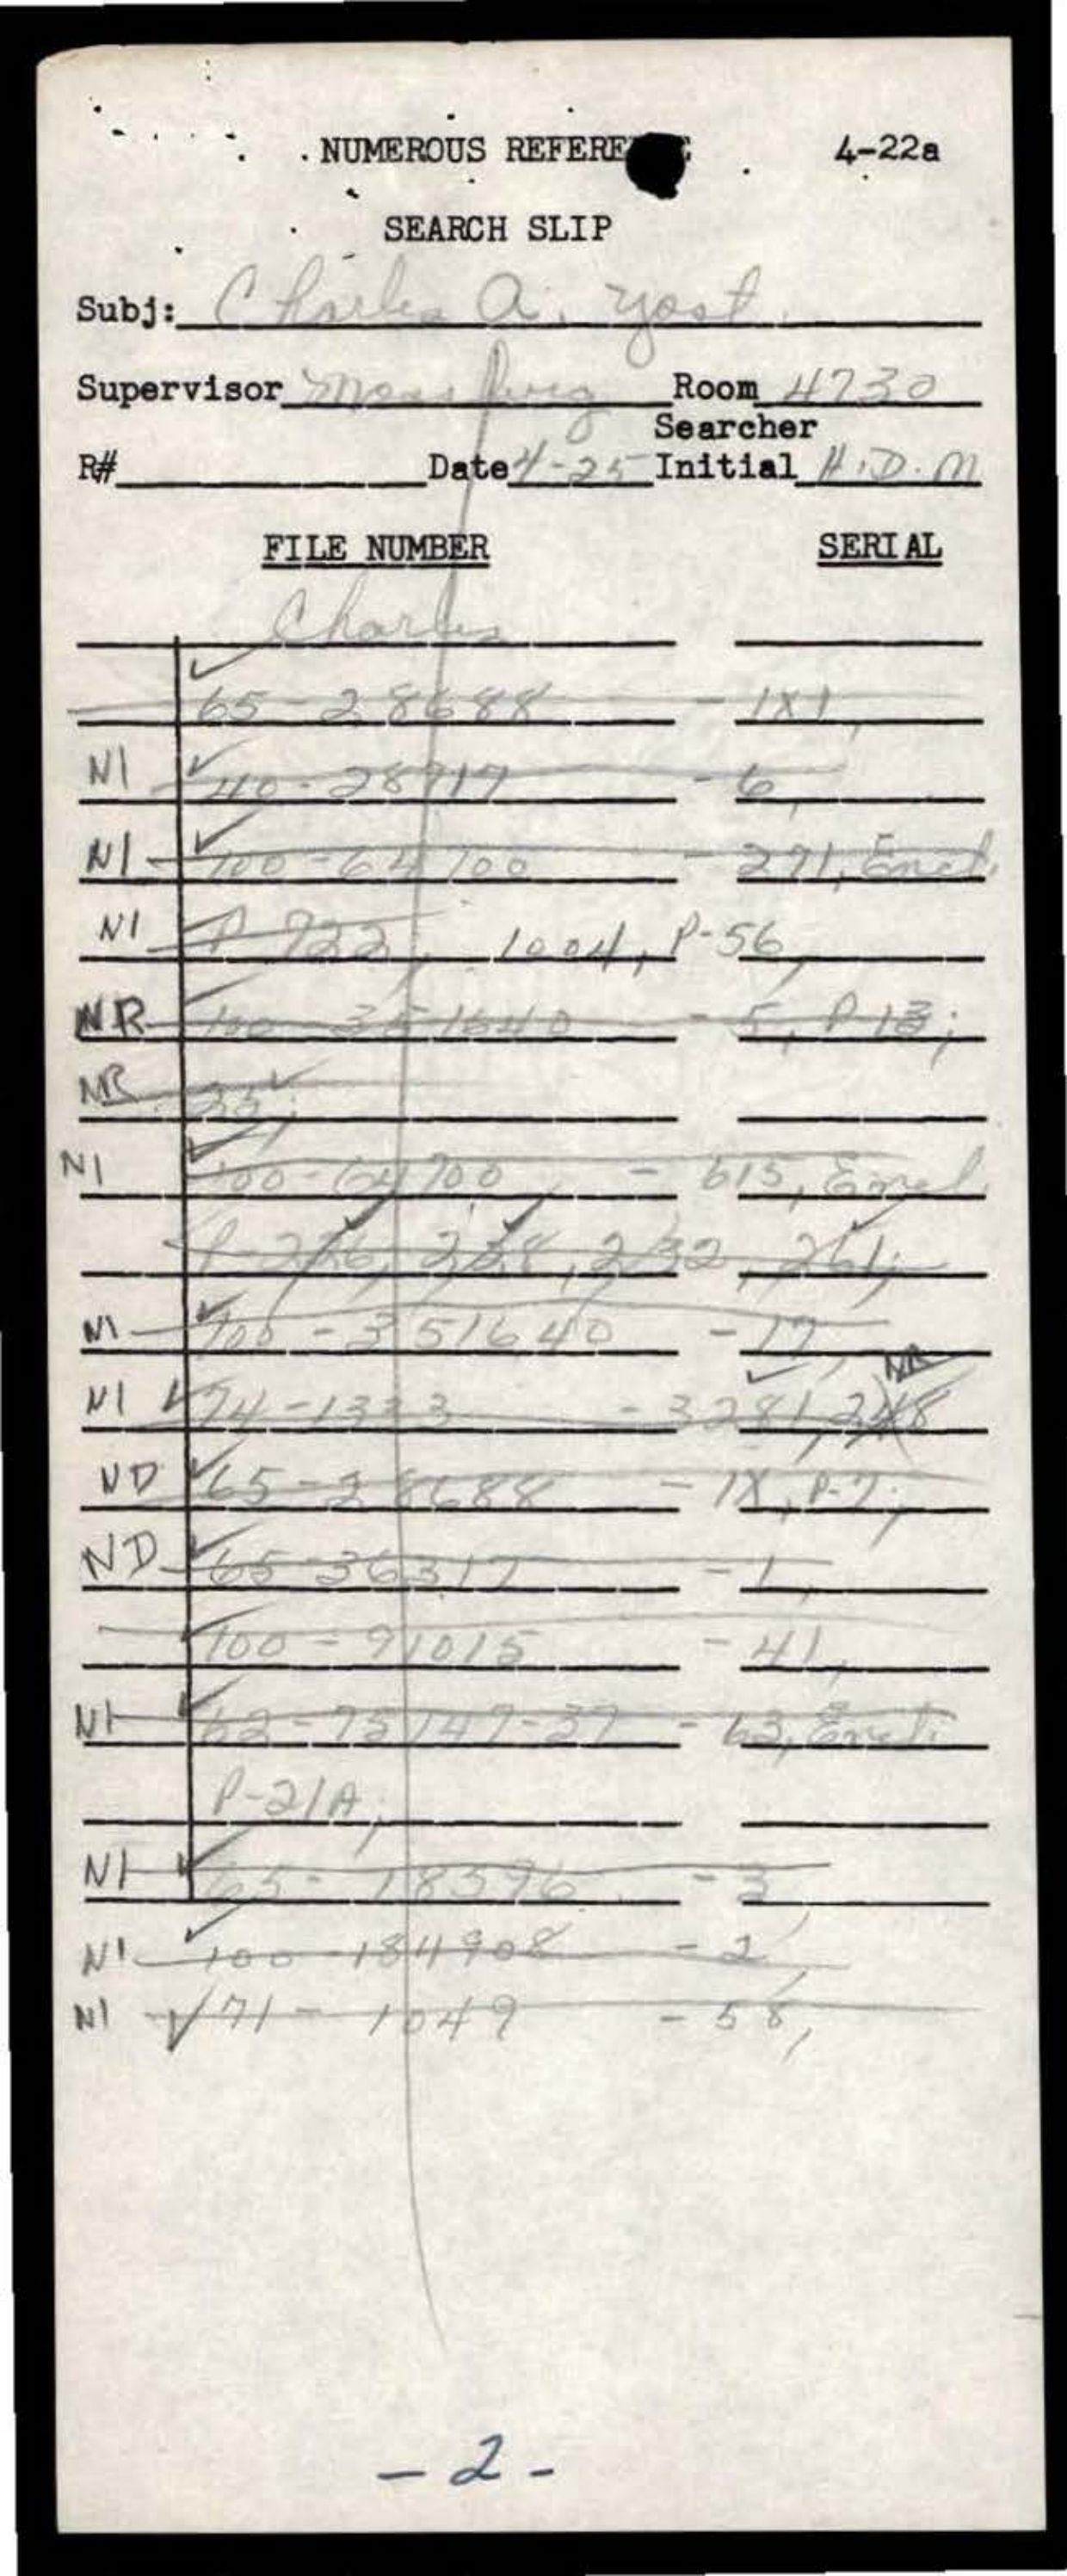 NUMEROUS REFERE 4-22a
SEARCH SLIP
Subj: Charles A. Yost
Supervisor Room 4730
Searcher
R# Date 4-25 Initial H.D.M
FILE NUMBER SERIAL
Charles
65-28688 - 1X1,
NI 40-28717 - 6,
NI 100-64700 - 271, Encl.
NI P-722, 1004, P-56,
NR 100-351640 - 5, P-13;
NR 25;
NI 100-64700 - 615, Encl.
P-226, 228, 232, 261;
NI 100-351640 - 17,
NR
NI 94-1333 - 3281, 248
ND 65-28688 - 1X, P-7;
ND 65-36317 - 1,
100-91015 - 41,
NI 62-75147-37 - 63, Encl.
P-21A,
NI 65-18396 - 3,
NI 100-184908 - 2,
NI 71-1049 - 58,
- 2 -